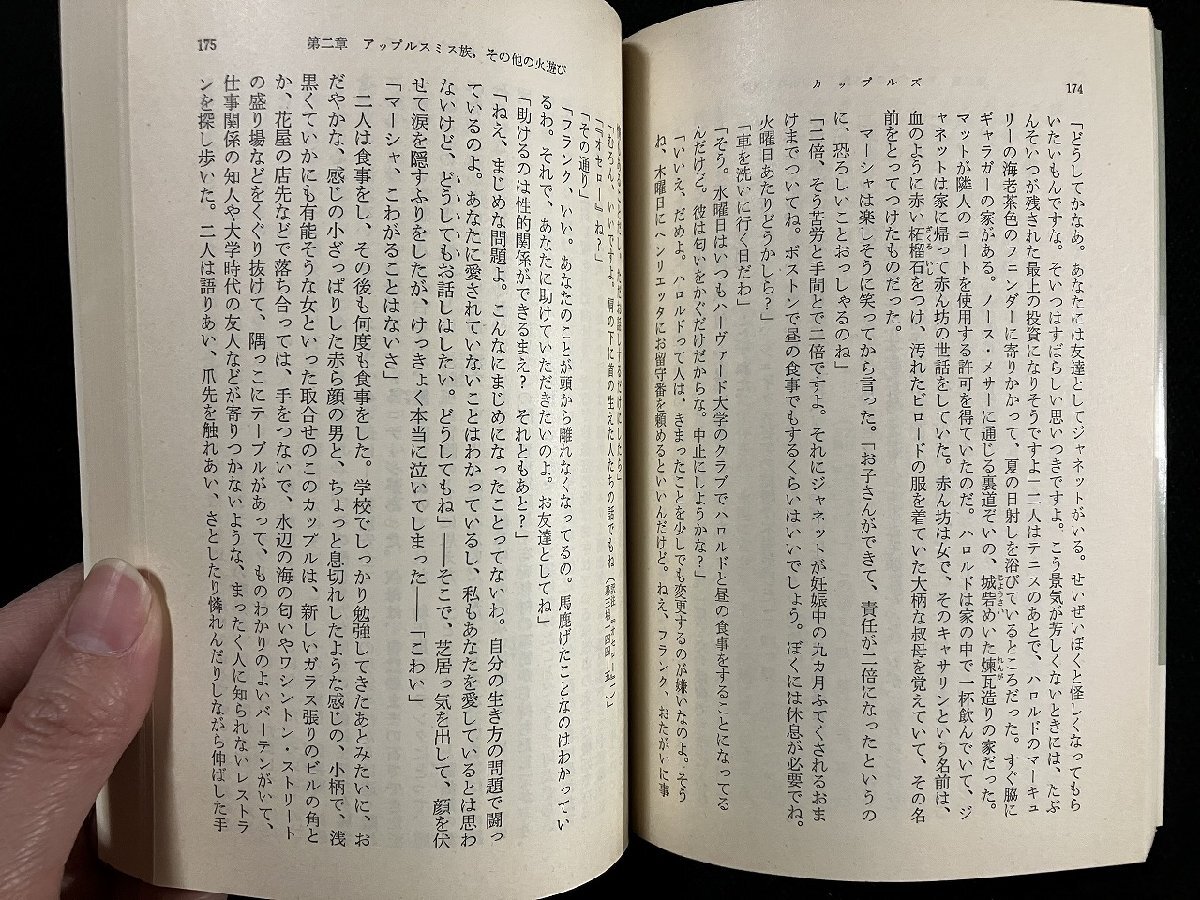 174
カップルズ
「どうしてかなあ。あなたには友達としてジャネットがいる。せいぜいぼくと怪しくなってもら
いたいもんですな。そいつはすばらしい思いつきですよ。こう景気が芳しくないときには、たぶ
んそいつが残された最上の投資になりそうですよ――二人はテニスのあとで、ハロルドのマーキュ
リーの海老茶色のフェンダーに寄りかかって、夏の日射しを浴びているところだった。すぐ脇に
ギャラガーの家がある。ノース・メサーに通じる裏道ぞいの、城砦めいた煉瓦造りの家だった。
じょうさい
れんが
マットが隣人のコートを使用する許可を得ていたのだ。ハロルドは家の中で一杯飲んでいて、ジ
ャネットは家に帰って赤ん坊の世話をしていた。赤ん坊は女で、そのキャサリンという名前は、
血のように赤い柘榴石をつけ、汚れたビロードの服を着ていた大柄な叔母を覚えていて、その名
ざくろいし
前をとってつけたものだった。
マーシャは楽しそうに笑ってから言った。「お子さんができて、責任が二倍になったというの
に、恐ろしいことおっしゃるのね」
「二倍、そう苦労と手間とで二倍ですよ。それにジャネットが妊娠中の九カ月ふてくされるおま
けまでついてね。ボストンで昼の食事でもするくらいはいいでしょう。ぼくには休息が必要でね。
火曜日あたりどうかしら?」
「車を洗いに行く日だわ」
「そう。水曜日はいつもハーヴァード大学のクラブでハロルドと昼の食事をすることになってる
んだけど。彼は匂いをかぐだけだからな。中止にしようかな?」
「いいえ、だめよ。ハロルドって人は、きまったことを少しでも変更するのが嫌いなのよ。そう
ね、木曜日にヘンリエッタにお留守番を頼めるといいんだけど。ねえ、フランク、おたがいに事
175
第二章　アップルスミス族, その他の火遊び
ただお話しするだけにしたら」
「むろん、いいですよ。肩の下に首の生えた人たちの話でもね
「『オセロー』ね?」
「その通り」
「フランク、いい。あなたのことが頭から離れなくなってるの。馬鹿げたことなのはわかってい
るわ。それで、あなたに助けていただきたいのよ。お友達としてね」
「助けるのは性的関係ができるまえ? それともあと?」
「ねえ、まじめな問題よ。こんなにまじめになったことってないわ。自分の生き方の問題で闘っ
ているのよ。あなたに愛されていないことはわかっているし、私もあなたを愛しているとは思わ
ないけど、どうしてもお話しはしたい。どうしてもね」――そこで、芝居っ気を出して、顔を伏
せて涙を隠すふりをしたが、けっきょく本当に泣いてしまった――「こわい」
「マーシャ、こわがることはないさ」
二人は食事をし、その後も何度も食事をした。学校でしっかり勉強してきたあとみたいに、お
だやかな、感じの小ざっぱりした赤ら顔の男と、ちょっと息切れしたような感じの、小柄で、浅
黒くていかにも有能そうな女といった取合せのこのカップルは、新しいガラス張りのビルの角と
か、花屋の店先などで落ち合っては、手をつないで、水辺の海の匂いやワシントン・ストリート
の盛り場などをくぐり抜けて、隅っこにテーブルがあって、ものわかりのよいバーテンがいて、
仕事関係の知人や大学時代の友人などが寄りつかないような、まったく人に知られないレストラ
ンを探し歩いた。二人は語りあい、爪先を触れあい、さとしたり憐れんだりしながら伸ばした手